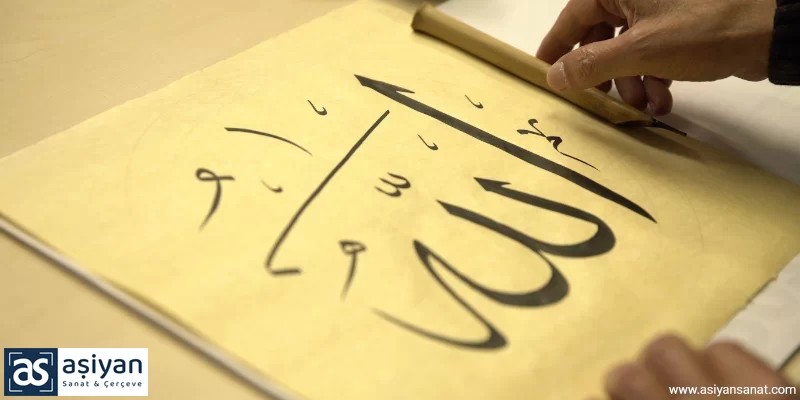 الله
as aşiyan
Sanat & Çerçeve
www.asiyansanat.com